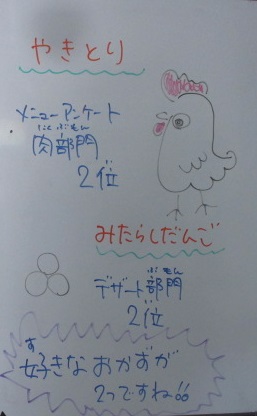 やきとり
メニューアンケート
にくぶもん
肉部門
2位
みたらしだんご
ぶもん
デザート部門
2位
す
好きなおかずが
2つですね!!